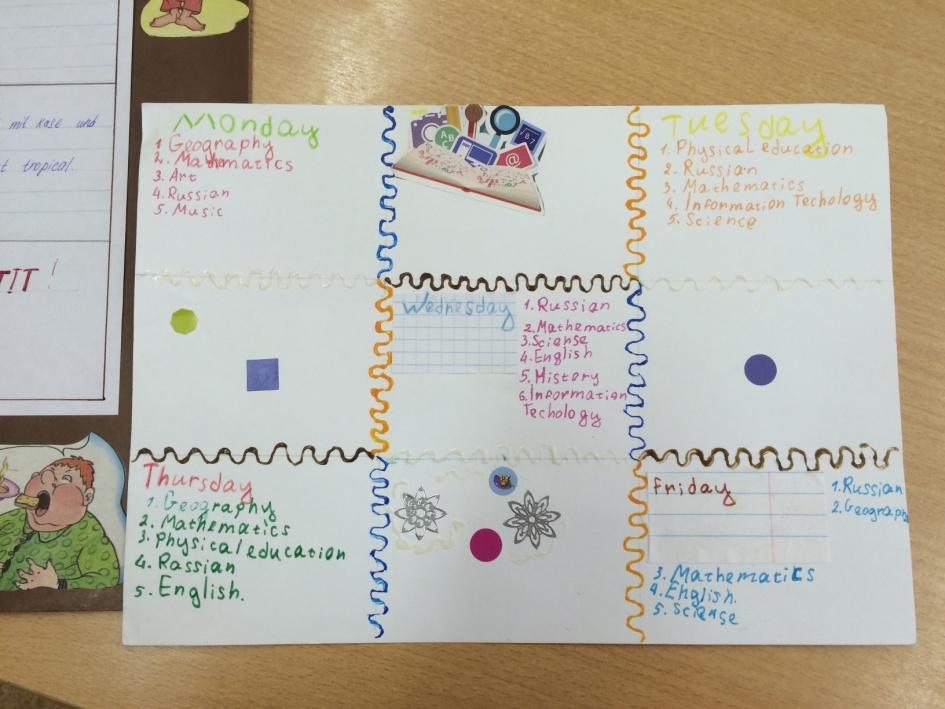 mit Kase und
t tropical.
TIT!
Monday
1 Geography
2. Mathematics
3. Art
4. Russian
5. Music
Tuesday
1. Physical education
2. Russian
3. Mathematics
4. Information Techology
5. Science
Wednesday
1. Russian
2. Mathematics
3. Sciense
4. English
5. History
6. Information
Techology
Thursday
1. Geography
2. Mathematics
3. Physical education
4. Rassian
5. English.
Friday
1. Russian
2. Geography
3. Mathematics
4. English.
5. Science